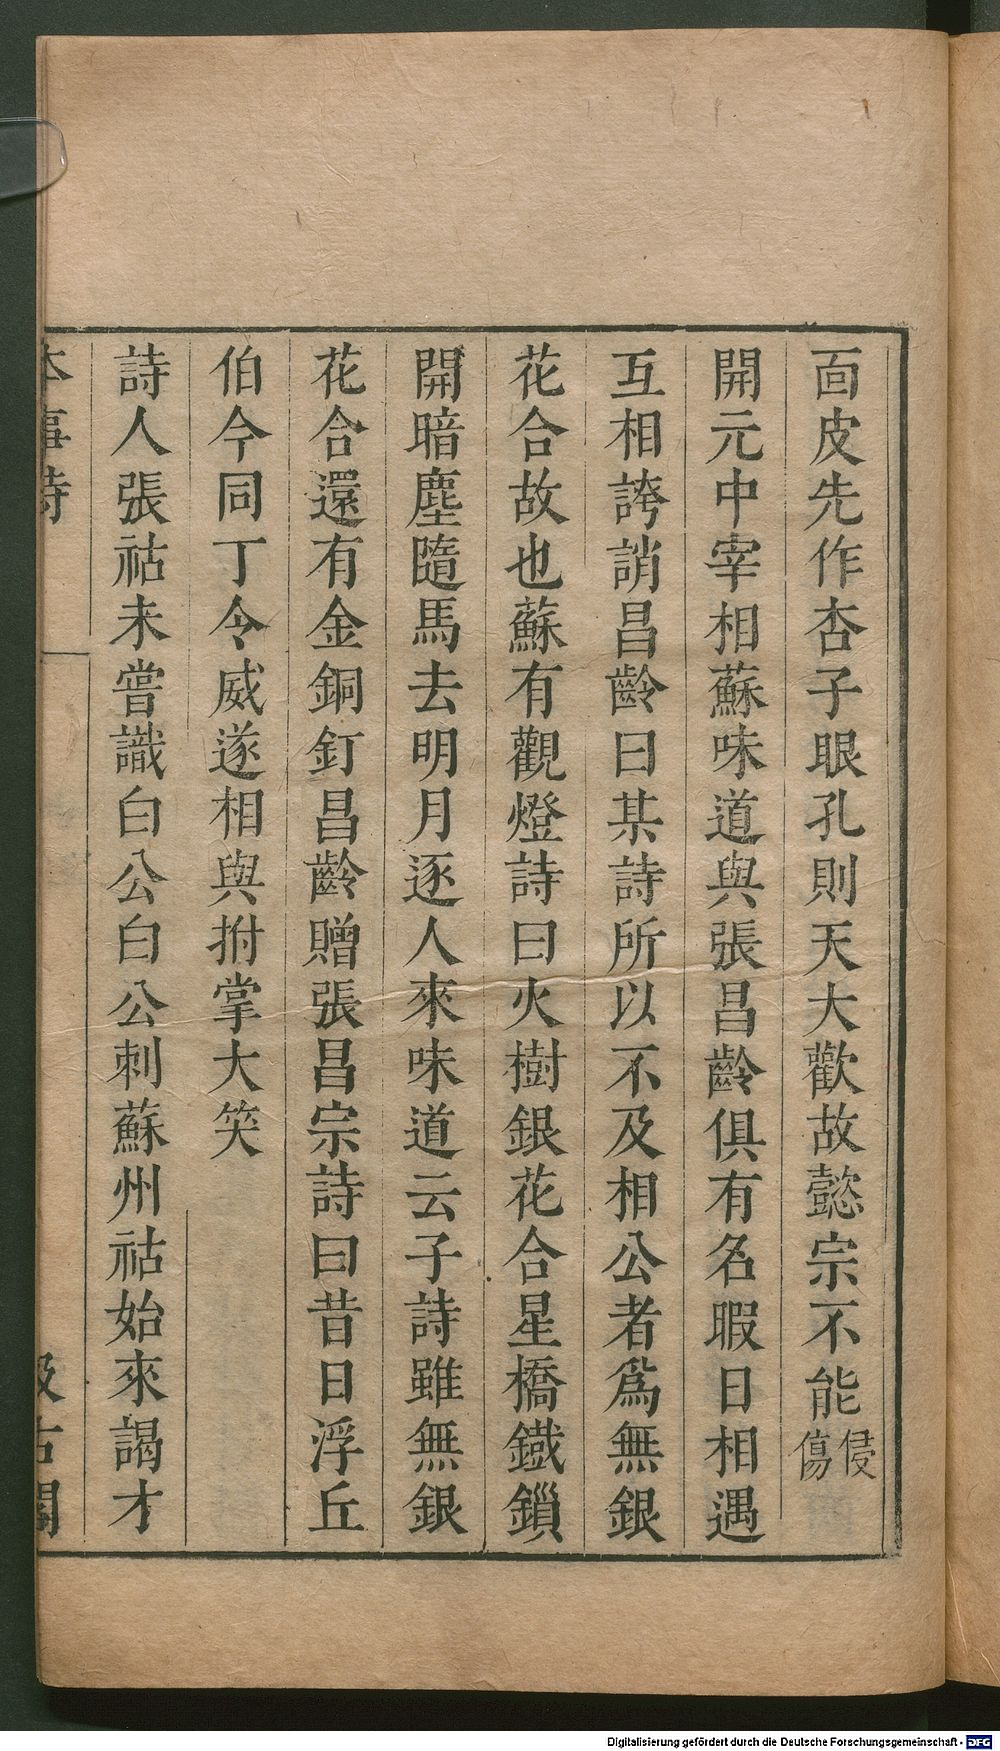 面皮先作杏子眼孔則天大歡故懿宗不能侵傷
開元中宰相蘇味道與張昌齡俱有名暇日相遇
互相誇誚昌齡曰某詩所以不及相公者爲無銀
花合故也蘇有觀燈詩曰火樹銀花合星橋鐵鎖
開暗塵隨馬去明月逐人來味道云子詩雖無銀
花合還有金銅釘昌齡贈張昌宗詩曰昔日浮丘
伯今同丁令威遂相與拊掌大笑
詩人張祜未嘗識白公白公刺蘇州祜始來謁才
本事詩
汲古閣
Digitalisierung gefördert durch die Deutsche Forschungsgemeinschaft - DFG